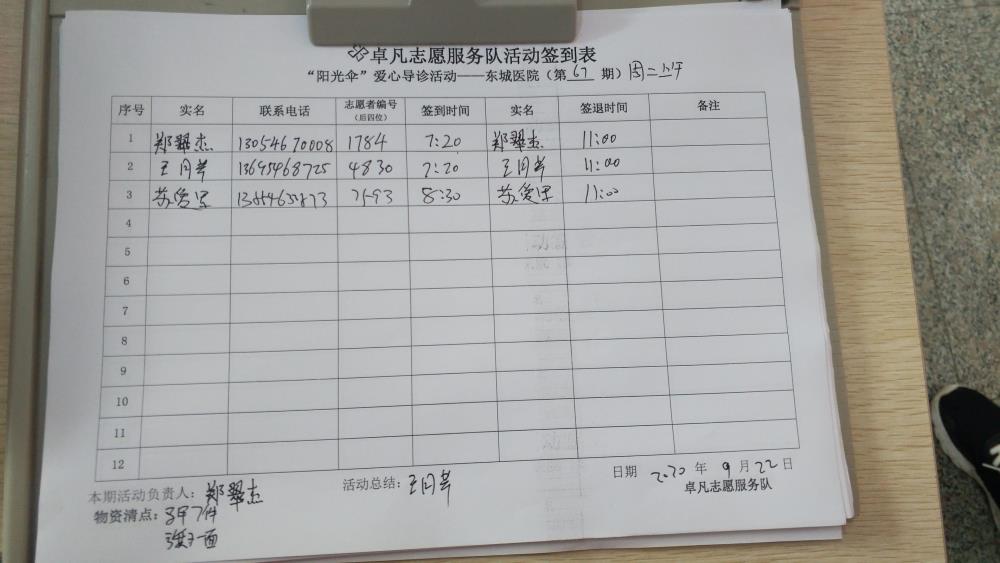 卓凡志愿服务队活动签到表
“阳光伞”爱心导诊活动——东城医院（第 67 期）周二上午
序号 实名 联系电话 志愿者编号（后四位） 签到时间 实名 签退时间 备注
1 郑翠杰 13054670008 1784 7:20 郑翠杰 11:00
2 王月芹 13645468725 4830 7:20 王月芹 11:00
3 苏爱 7593 8:30 苏爱 11:00
4
5
6
7
8
9
10
11
12
日期 2020 年 9 月 22 日
本期活动负责人：郑翠杰 活动总结：王月芹 卓凡志愿服务队
物资清点：马甲7件
一面